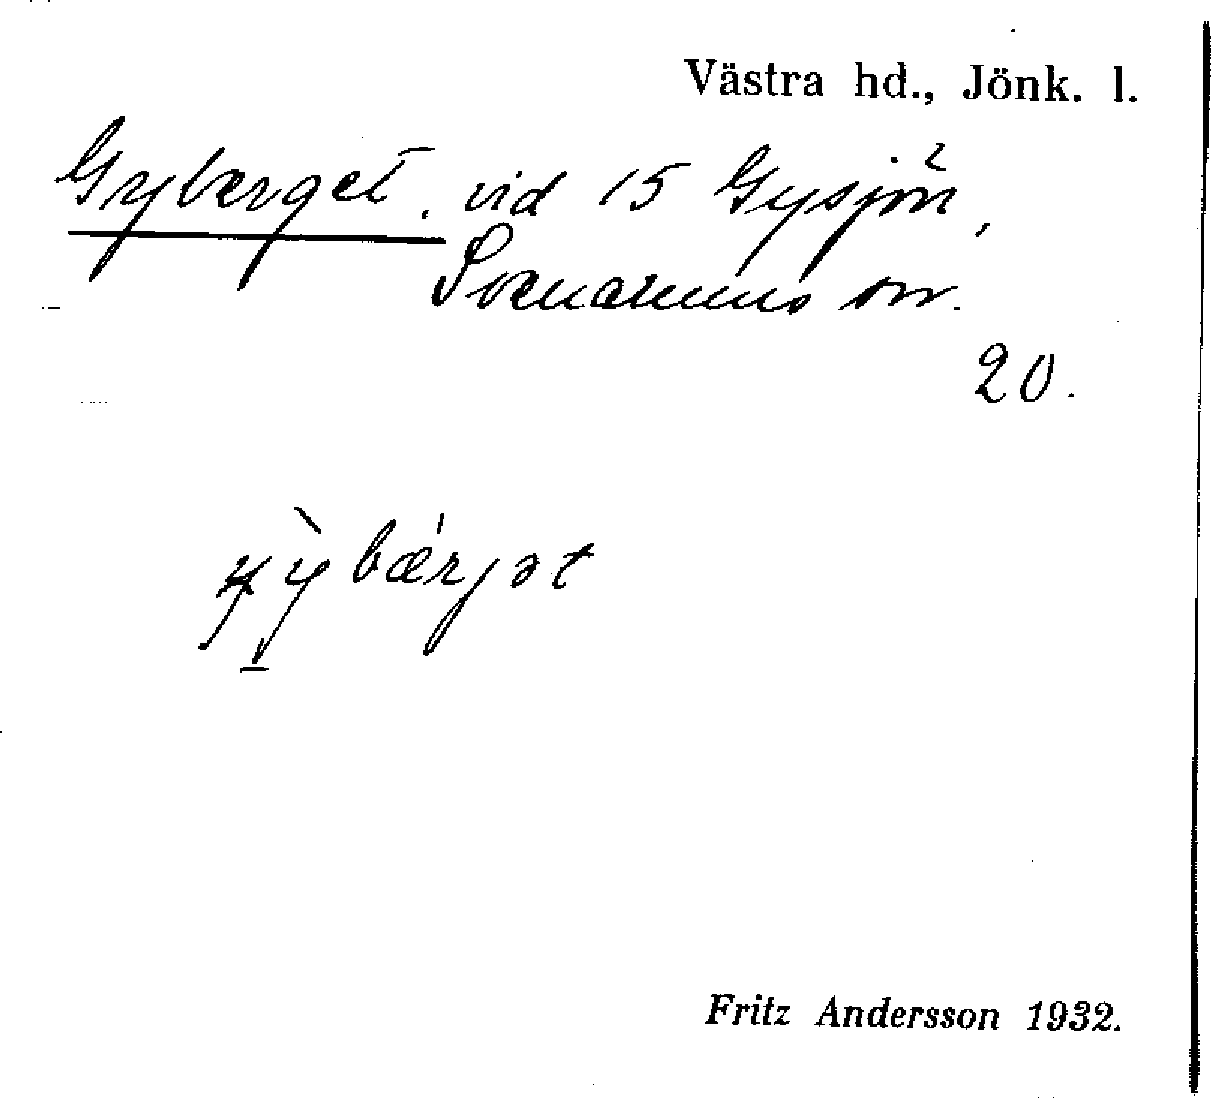 Västra hd., Jönk. l.
Gyberget. vid 15 Gysjön,
Svenarums sn.
20.
bærjət
Fritz Andersson 1932.